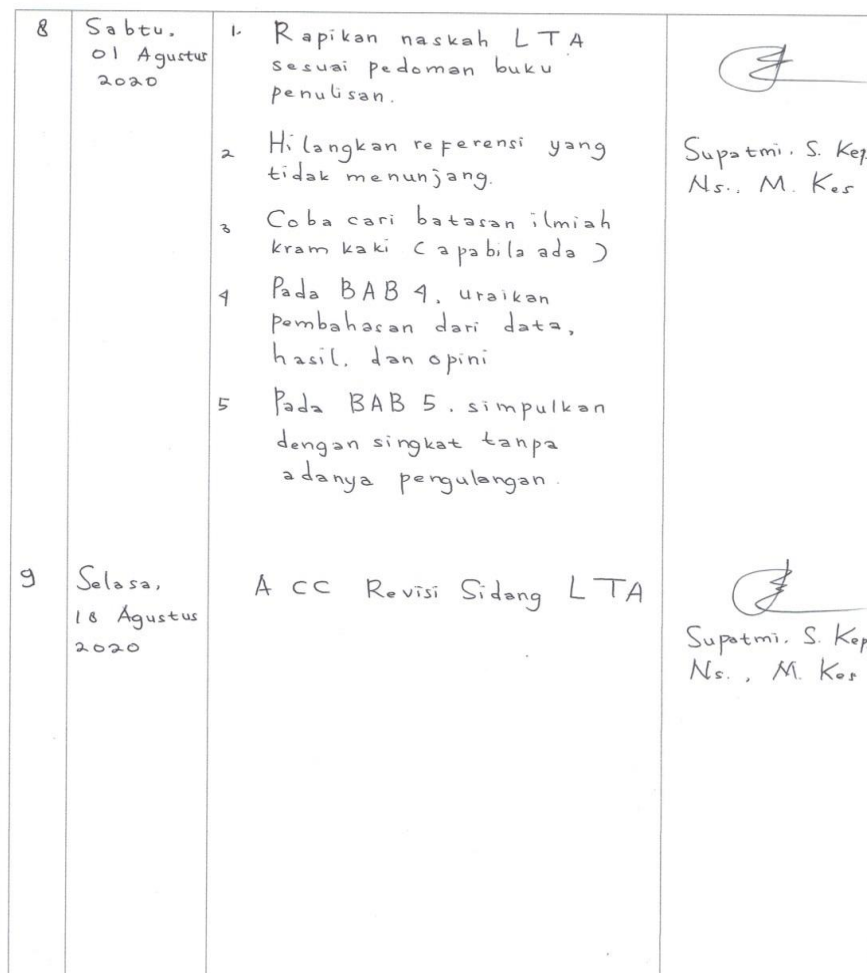 8
Sabtu,
01 Agustus
2020
1. Rapikan naskah LTA
sesuai pedoman buku
penulisan.
2 Hilangkan referensi yang
tidak menunjang.
3 Coba cari batasan ilmiah
kram kaki (apabila ada)
4 Pada BAB 4, uraikan
pembahasan dari data,
hasil, dan opini
5 Pada BAB 5. simpulkan
dengan singkat tanpa
adanya pengulangan.
Supatmi. S. Kep.
Ns., M. Kes
9
Selasa,
18 Agustus
2020
ACC Revisi Sidang LTA
Supatmi. S. Kep
Ns., M. Kes